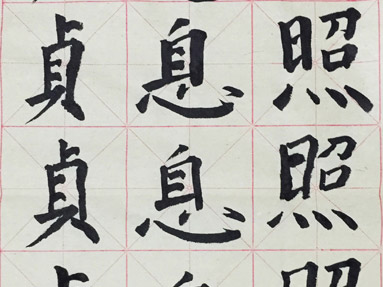 貞息照
貞息照